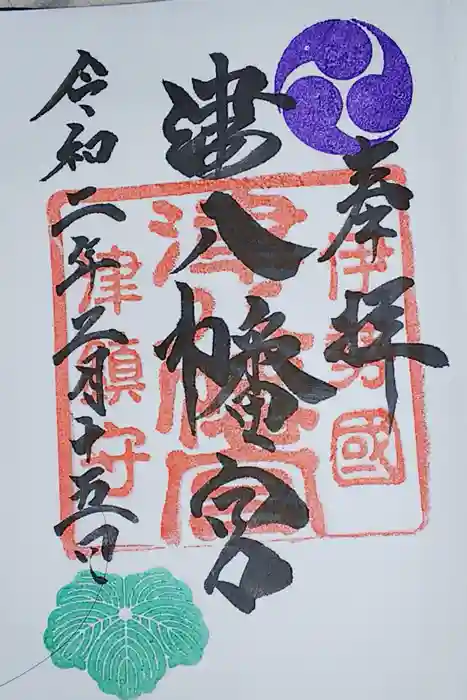 奉拝
伊勢國
津八幡宮
津八幡宮
津鎮守
令和二年二月十五日